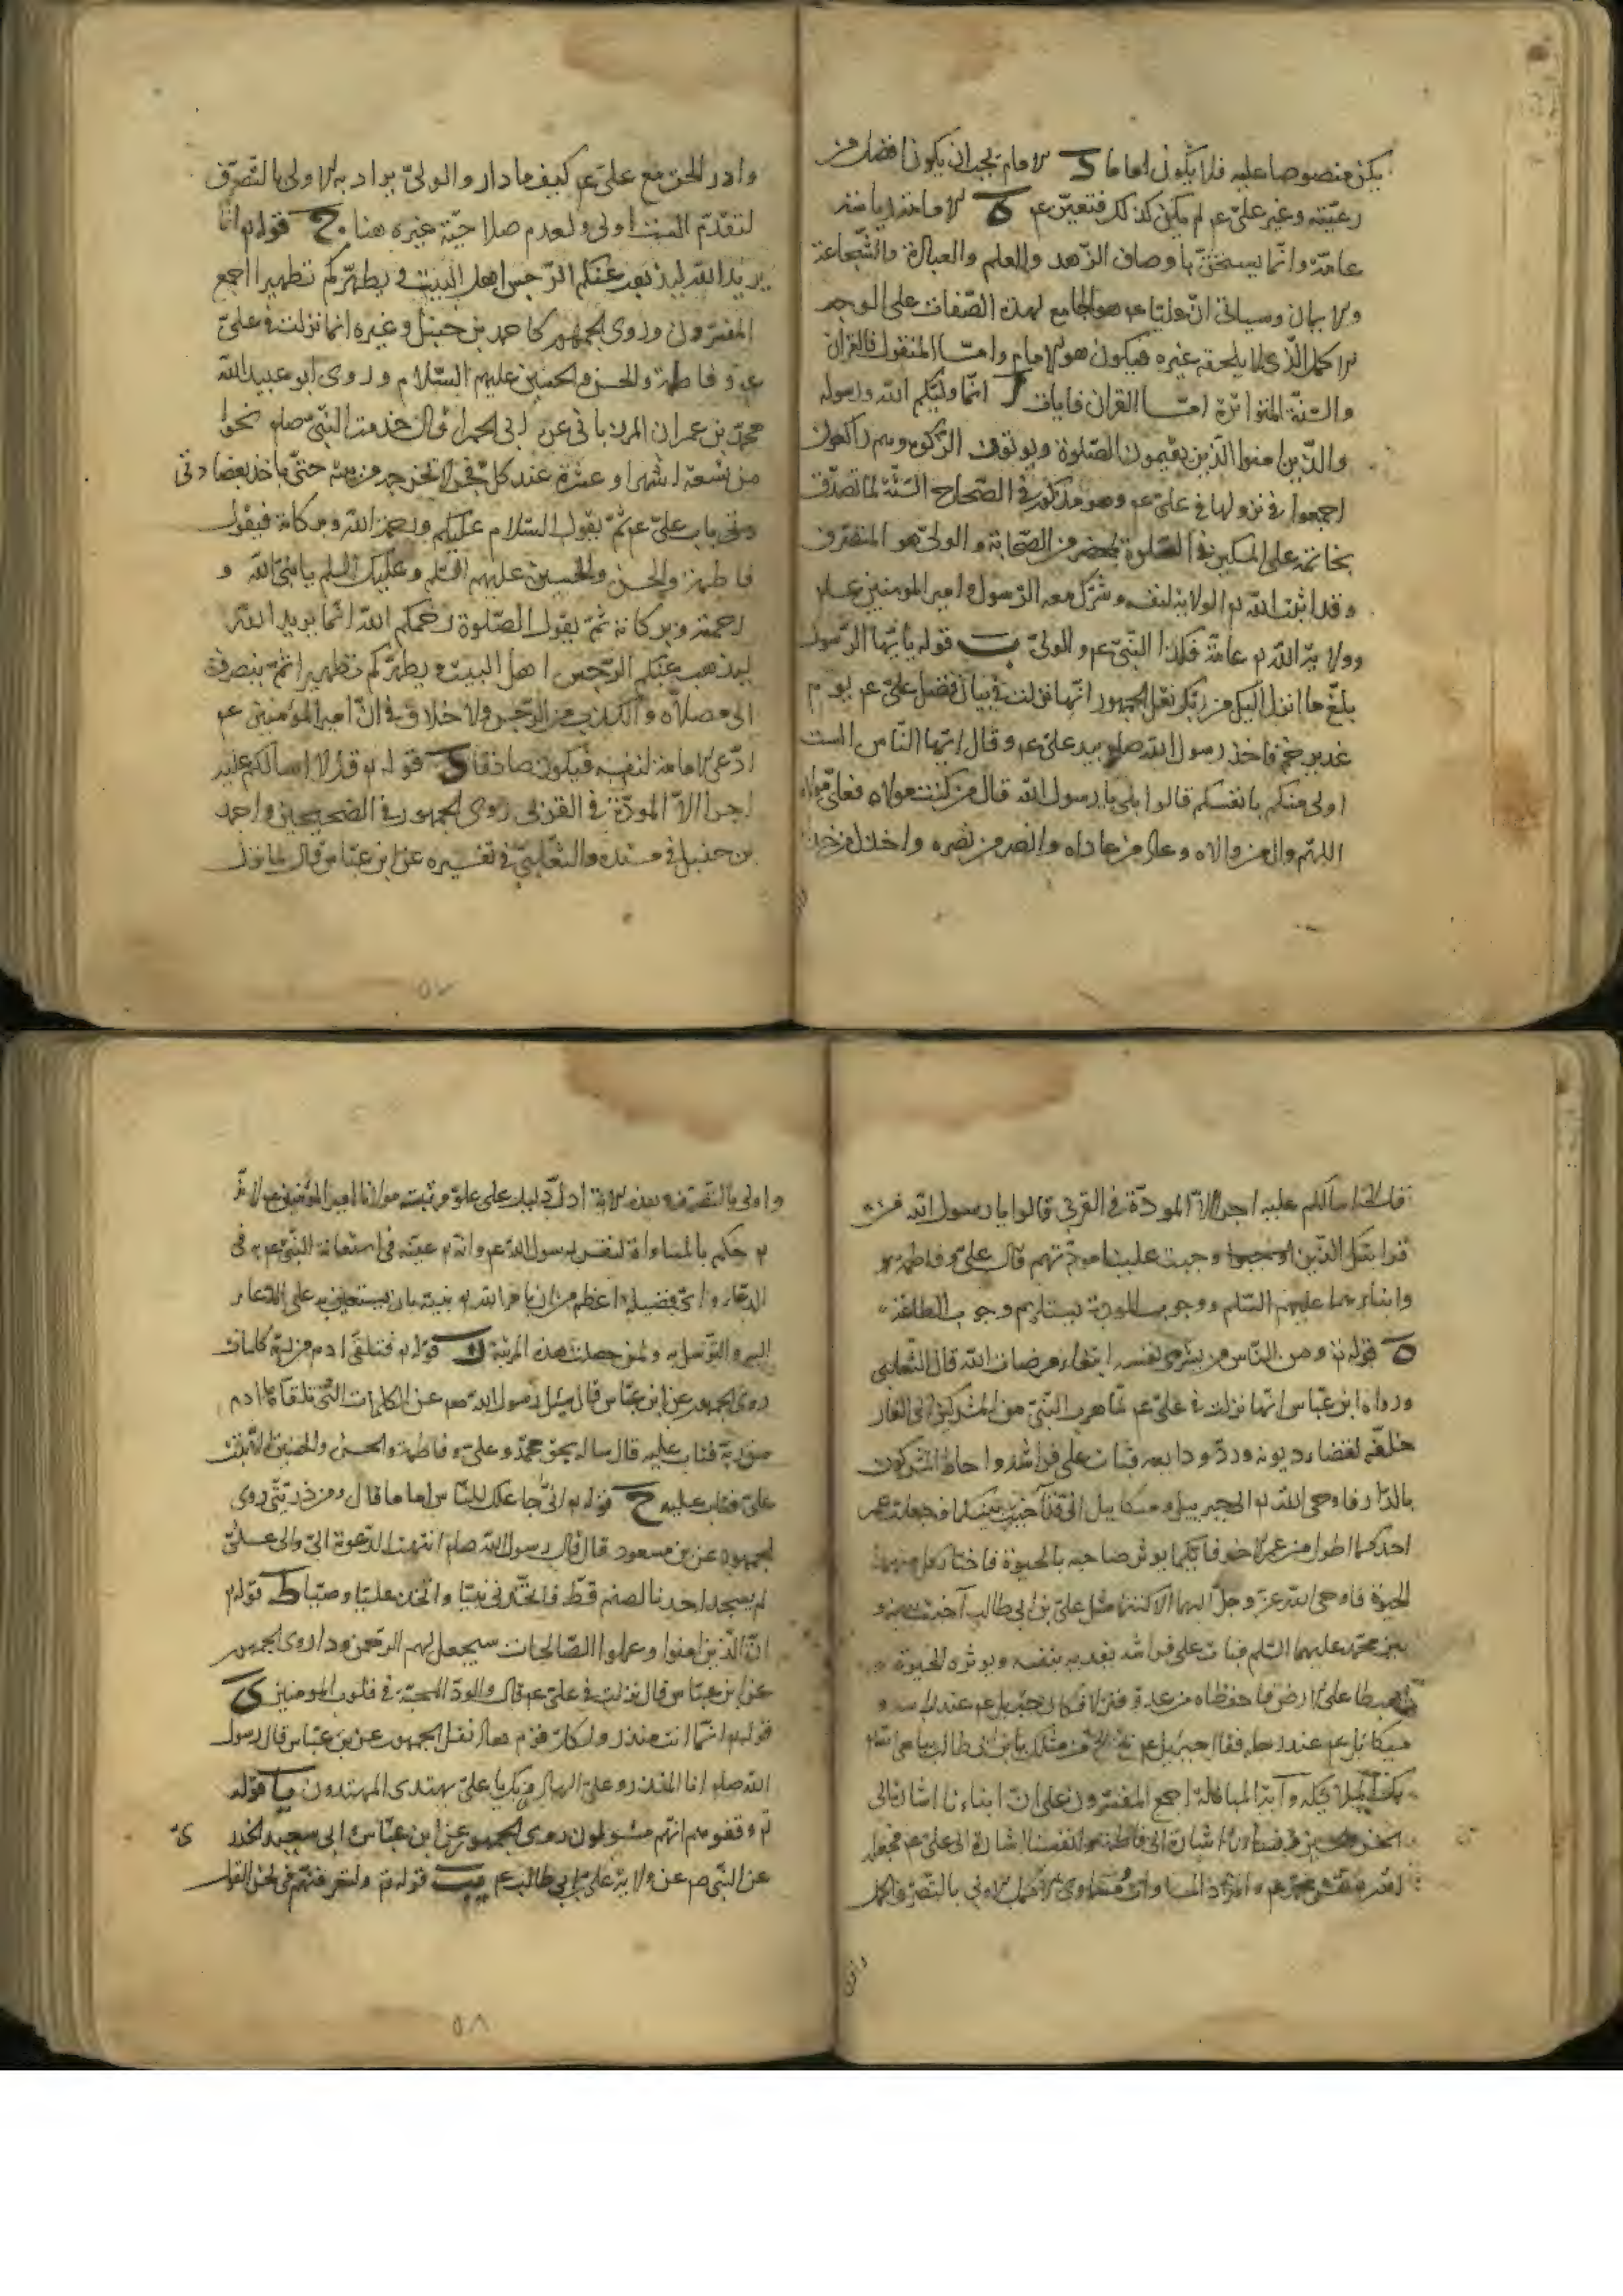 يكن منصوصا عليه فلا يكون اماما د الامام يجب ان يكون افضل من
رعيته وغير علي عم لم يكن كذلك فتعين عم ه الامامة رياسة
عامة وانما يستحق باوصاف الزهد والعلم والعبادة والشجاعة
والايمان وسياتي ان عليا عم هو الجامع لهذه الصفات على الوجه
الاكمل الذي لا يلحقه غيره فيكون هو الامام واما المنقول فالقران
والسنة المتواترة اما القران فايات ا انما وليكم الله ورسوله
والذين امنوا الذين يقيمون الصلوة ويوتون الزكوة وهم راكعون
اجمعوا في نزولها في علي عم وهو مذكور في الصحاح الستة لما تصدق
بخاتمه على المسكين في الصلوة بمحضر من الصحابة والولي هو المتصرف
وقد اثبت الله له الولاية لنفسه وشرك معه الرسول وامير المومنين عم
وولاية الله عامة فكذا النبي عم والولي ب قوله يا ايها الرسول
بلغ ما انزل اليك من ربك نقل الجمهور انها نزلت في بيان فضل علي عم يوم
غدير خم فاخذ رسول الله صلم بيد علي عم وقال ايها الناس الست
اولى منكم بانفسكم قالوا بلى يا رسول الله قال من كنت مولاه فعلي مولاه
اللهم وال من والاه وعاد من عاداه وانصر من نصره واخذل من خذله
وادر الحق مع علي عم كيف ما دار والولي يراد به الاولى بالتصرف
لتقدم الست اولى ولعدم صلاحية غيره هنا ج قوله انما
يريد الله ليذهب عنكم الرجس اهل البيت ويطهركم تطهيرا اجمع
المفسرون وروى الجمهور كاحمد بن حنبل وغيره انها نزلت في علي
عم وفاطمة والحسن والحسين عليهم السلام وروى ابو عبيد الله
محمد بن عمران المرزباني عن ابي الحمراء قال خدمت النبي صلم نحوا
من تسعة اشهر او عشرة عند كل فجر لا يخرج من بيته حتى ياخذ بعضادتي
باب علي عم ثم يقول السلام عليكم ورحمة الله وبركاته فيقول
فاطمة والحسن والحسين عليهم السلم وعليك السلم يا نبي الله و
رحمته وبركاته ثم يقول الصلوة رحمكم الله انما يريد الله
ليذهب عنكم الرجس اهل البيت ويطهركم تطهيرا ثم ينصرف
الى مصلاه والكذب من الرجس ولا خلاف في ان امير المؤمنين عم
ادعى الامامة لنفسه فيكون صادقا د قوله قل لا اسالكم عليه
اجرا الا المودة في القربى روى الجمهور في الصحيحين واحمد
بن حنبل في مسنده والثعلبي في تفسيره عن ابن عباس قال لما نزل
٥٧
قل لا اسالكم عليه اجرا الا المودة في القربى قالوا يا رسول الله من
قرابتك الذين وجبت علينا مودتهم قال علي وفاطمة
وابناءهما عليهم السلم ووجوب المودة يستلزم وجوب الطاعة
ه قوله ومن الناس من يشري نفسه ابتغاء مرضات الله قال الثعلبي
ورواه ابن عباس انها نزلت في علي عم لما هرب النبي من المشركين الى الغار
خلفه لقضاء ديونه ورد ودايعه فبات على فراشه واحاط المشركون
بالدار فاوحى الله الى جبريل وميكاييل اني قد آخيت بينكما وجعلت عمر
احدكما اطول من عمر الاخر فايكما يوثر صاحبه بالحيوة فاختار كل منهما
الحيوة فاوحى الله عز وجل اليهما الا كنتما مثل علي بن ابي طالب آخيت بينه و
بين محمد عليهما السلم فبات على فراشه يفديه بنفسه ويوثره الحيوة
اهبطا على الارض فاحفظاه من عدوه فنزلا فكان جبريل عم عند راسه و
ميكائيل عم عند رجليه فقال جبرئيل عم بخ بخ من مثلك يا ابن ابي طالب يباهي الله
بك الملائكة و آية المباهلة اجمع المفسرون على ان ابناءنا اشارة الى
الحسن والحسين ونساءنا اشارة الى فاطمة وانفسنا اشارة الى علي عم فجعله
الله نفس محمد عم والمراد المساواة ومساوي الاكمل الاولى بالتصرف اكمل
واولى
واولى بالتصرف وهذه الاية ادل دليل على علو مرتبة مولانا امير المؤمنين عم لانه
حكم بالمساواة لنفس رسول الله عم وانه عينه في استعانة النبي عم به في
الدعاء واي فضيلة اعظم من ان يامر الله نبيه بان يستعين به على الدعاء
اليه والتوسل به ولمن حصلت هذه المرتبة قوله فتلقى ادم من ربه كلمات
روى الجمهور عن ابن عباس قال سئل رسول الله صم عن الكلمات التي تلقاها ادم
من ربه فتاب عليه قال ساله بحق محمد وعلي وفاطمة والحسن والحسين الا تبت
علي فتاب عليه ح قوله اني جاعلك للناس اماما قال ومن ذريتي روى
الجمهور عن بن مسعود قال قال رسول الله صلم انتهت الدعوة الي والى علي
لم يسجد احدنا لصنم قط فاتخذني نبيا واتخذ عليا وصيا ط قوله
ان الذين امنوا وعملوا الصالحات سيجعل لهم الرحمن ودا روى الجمهور
عن ابن عباس قال نزلت في علي عم قال والود المحبة في قلوب المومنين ى
قوله انما انت منذر ولكل قوم هاد نقل الجمهور عن بن عباس قال رسول
الله صلم انا المنذر وعلي الهادي وبك يا علي يهتدى المهتدون يا قوله
وقفوهم انهم مسؤولون روى الجمهور عن ابن عباس وابي سعيد الخدر
ى
عن النبي صم عن ولاية علي بن ابي طالب عم يب قوله ولتعرفنهم في لحن القول
٥٨